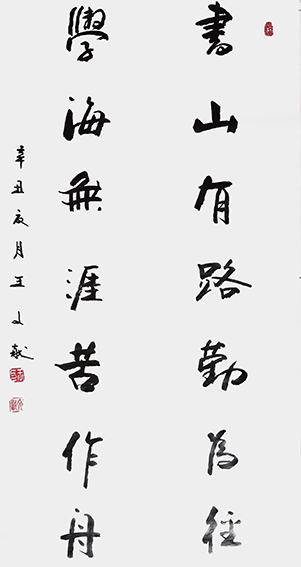 書山有路勤為徑
學海無涯苦作舟
辛丑夏月王文獻